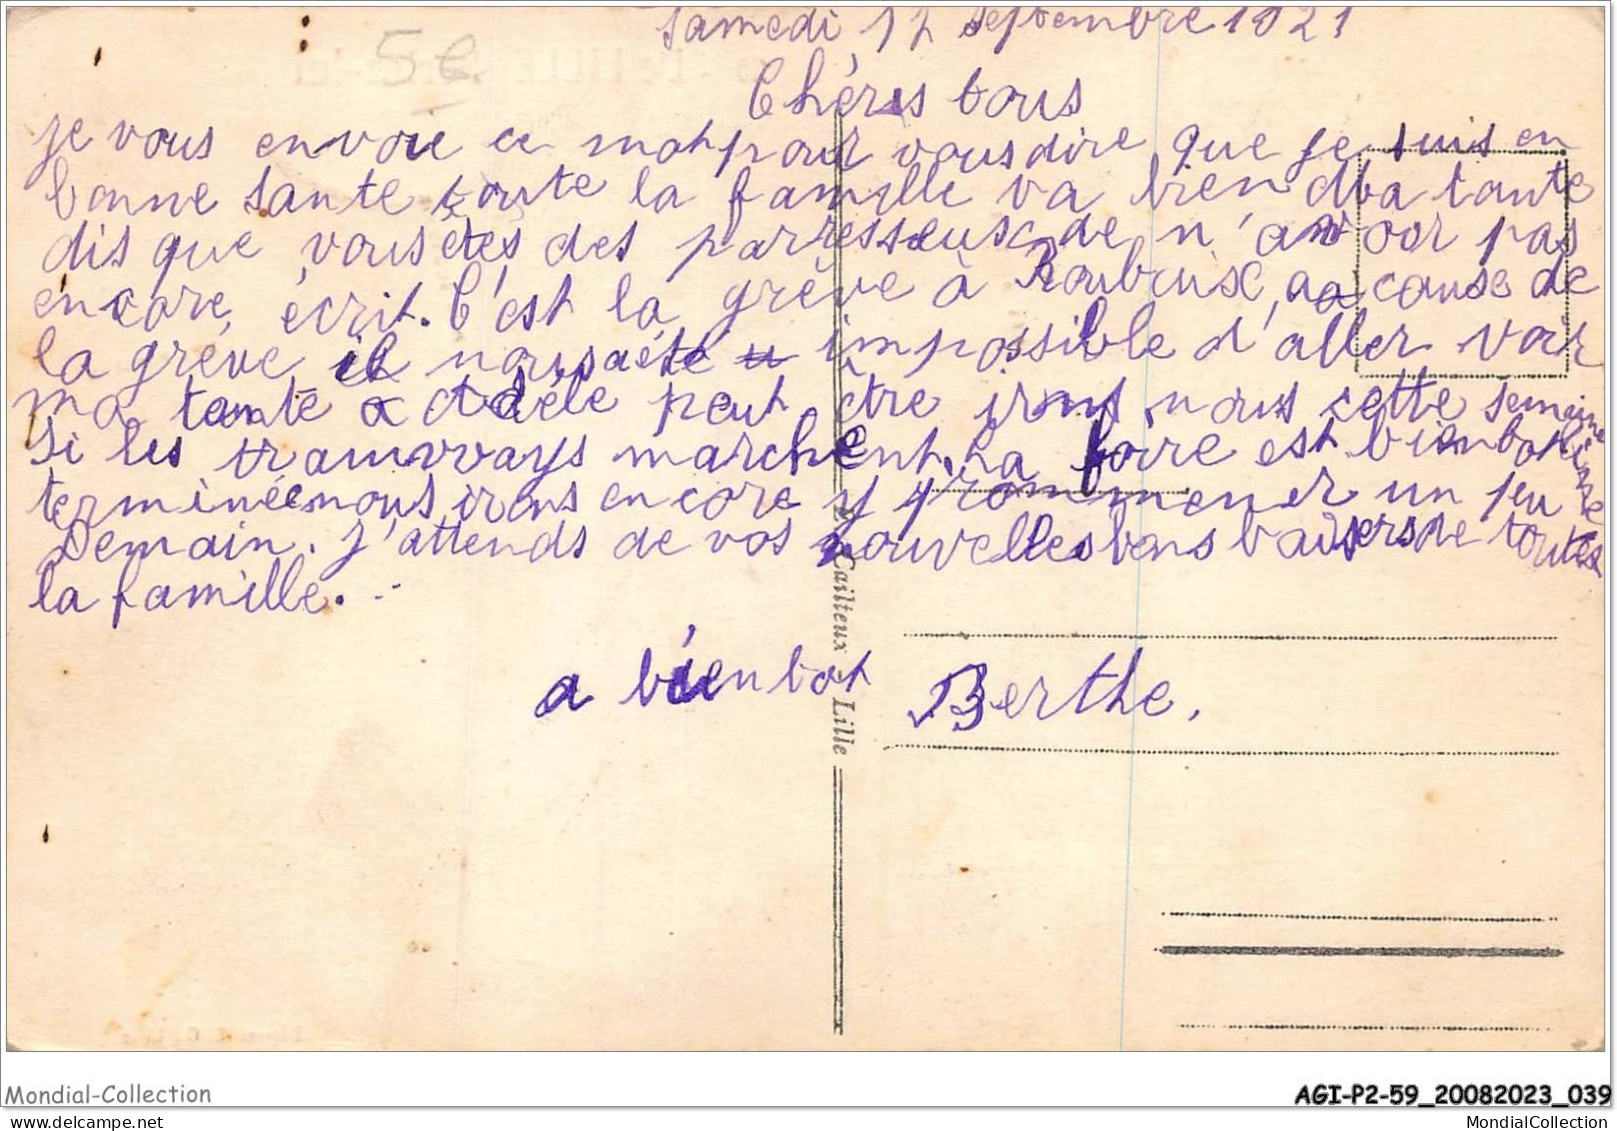 Samedi 17 Septembre 1921
5€
Chèrs tous
je vous envoie ce mot pour vous dire que je suis en
bonne sante toute la famille va bien dba tante
dis que vous êtes des parresseusc de n'avoor pas
encore, écrit. C'est la grève à Roubaix, aa cause de
la grève il nous a éte impossible d'aller voir
ma tante a Adèle peut être irons nous cette semaine
Si les tramvvays marchent. La foire est bientot
terminée nous irons encore y prommener un peu
Demain. J'attends de vos nouvelles bons baisers de toutes
la famille. ..
a bientot Berthe,
E. Cailteux - Lille
Mondial-Collection
AGI-P2-59_20082023_039
MondialCollection
MondialCollection